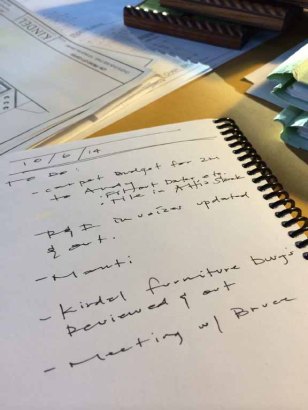 KINDEL
10/6/14
To Do:
- Carpet budget for 2n
to
: File in Attic Stock
- R&D invoices updated
& out.
- Manti
- Kindel furniture dwgs
Reviewed & out
- Meeting w/ Bruce